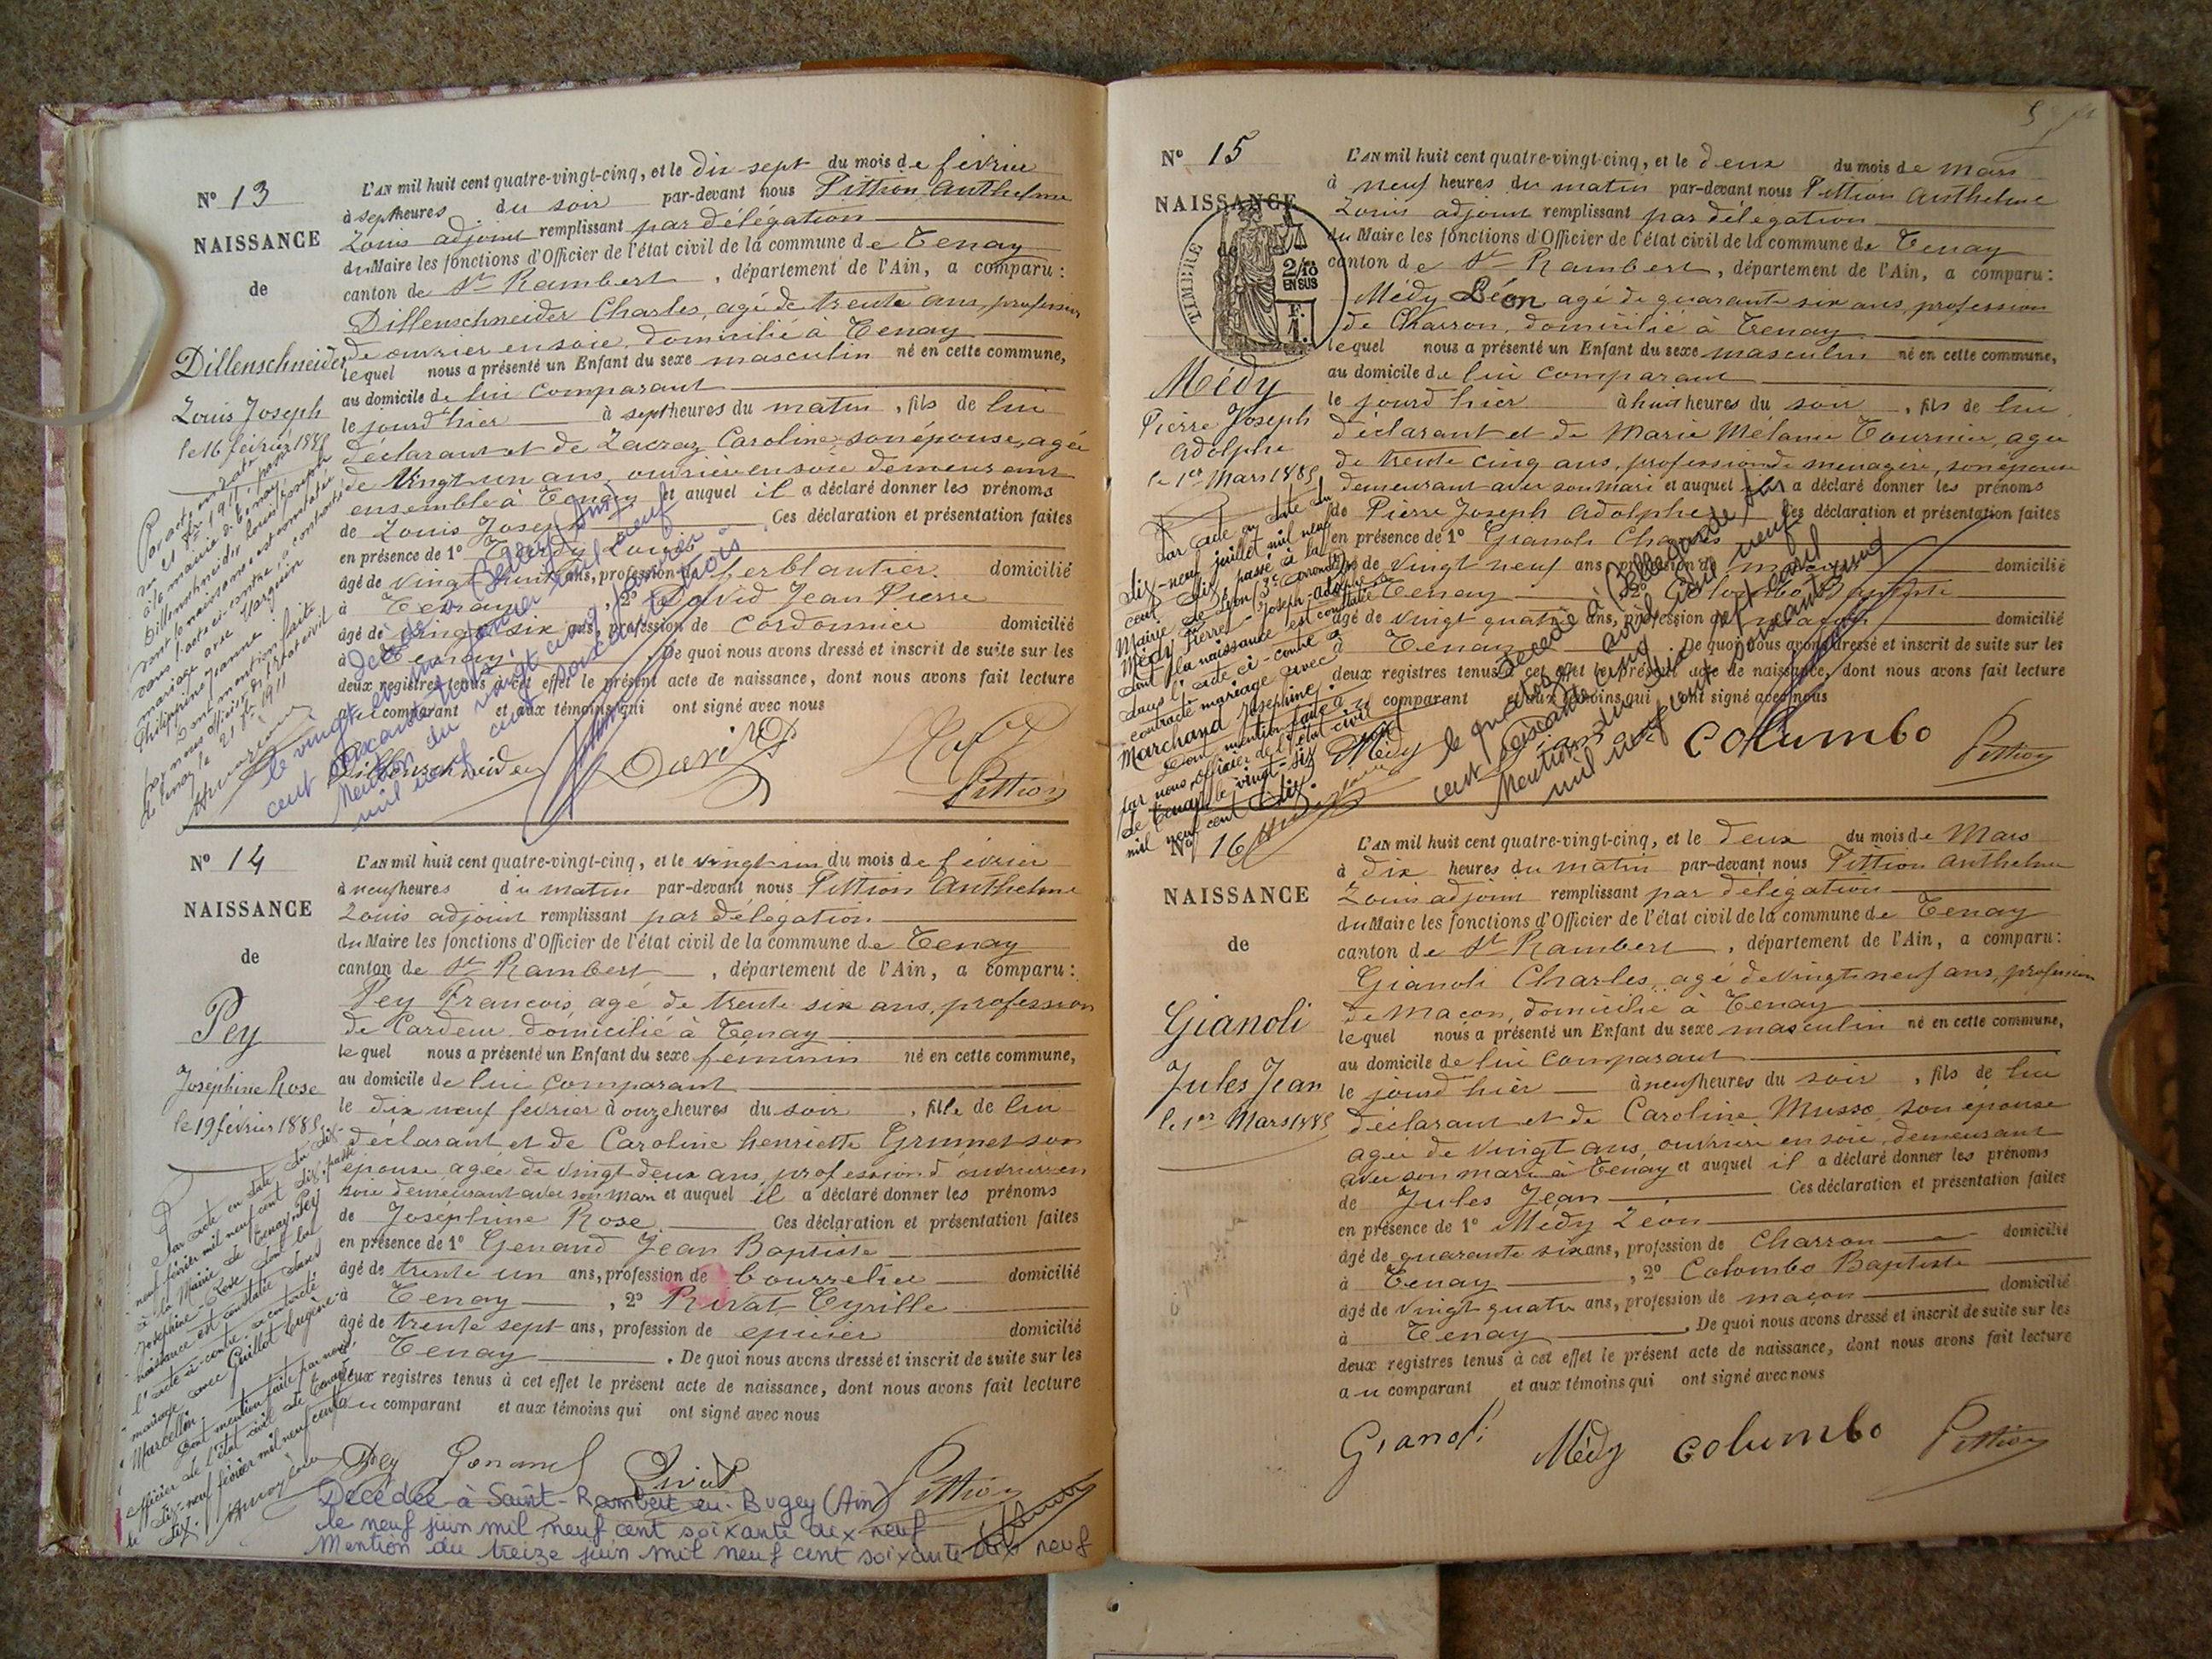 N° 13
NAISSANCE
de
Dillenschneider
Louis Joseph
le 16 février 1885
L'AN mil huit cent quatre-vingt-cinq, et le dix sept du mois de février
à sept heures du soir par-devant nous Pittion Anthelme
Louis adjoint remplissant par délégation
du Maire les fonctions d'Officier de l'état civil de la commune de Tenay
canton de St Rambert, département de l'Ain, a comparu:
Dillenschneider Charles, agé de trente ans, profession
de ouvrier en soie, domicilié à Tenay
lequel nous a présenté un Enfant du sexe masculin né en cette commune,
au domicile de lui comparant
le jourd'hier à sept heures du matin, fils de lui
déclarant et de Lacraz Caroline son épouse, agée
de Vingt un ans, ouvrière en soie demeurant
ensemble à Tenay et auquel il a déclaré donner les prénoms
de Louis Joseph Ces déclaration et présentation faites
en présence de 1°
âgé de vingt huit ans, profession de ferblantier domicilié
à Tenay, 2° David Jean Pierre
âgé de vingt six ans, profession de cordonnier domicilié
à Tenay. De quoi nous avons dressé et inscrit de suite sur les
deux registres tenus à cet effet le présent acte de naissance, dont nous avons fait lecture
au comparant et aux témoins qui ont signé avec nous
Dillenschneider David Pittion
Par acte en date
du 21 1911, passé
à la mairie de Tenay,
Dillenschneider Louis Joseph
dont la naissance est constatée
dans l'acte ci-contre, a contracté
mariage avec Marguin
Philippine Jeanne
Dont mention faite
par nous officier de l'état civil
de Tenay le 21 1911
Décédé à Belley (Ain)
le vingt janvier mil neuf
cent soixante trois
Mention du vingt cinq janvier
mil neuf cent soixante trois
N° 14
NAISSANCE
de
Pey
Joséphine Rose
le 19 février 1885
L'AN mil huit cent quatre-vingt-cinq, et le vingt un du mois de février
à neuf heures du matin par-devant nous Pittion Anthelme
Louis adjoint remplissant par délégation
du Maire les fonctions d'Officier de l'état civil de la commune de Tenay
canton de St Rambert, département de l'Ain, a comparu:
Pey François, agé de trente six ans, profession
de Cardeur domicilié à Tenay
lequel nous a présenté un Enfant du sexe féminin né en cette commune,
au domicile de lui comparant
le dix neuf février à onze heures du soir, fille de lui
déclarant et de Caroline henriette Grumet son
épouse agée de vingt deux ans, profession d'ouvrière en
soie demeurant avec son mari et auquel il a déclaré donner les prénoms
de Joséphine Rose. Ces déclaration et présentation faites
en présence de 1° Genand Jean Baptiste
âgé de trente un ans, profession de bourrelier domicilié
à Tenay, 2° Rivat Cyrille
âgé de trente sept ans, profession de épicier domicilié
Tenay. De quoi nous avons dressé et inscrit de suite sur les
deux registres tenus à cet effet le présent acte de naissance, dont nous avons fait lecture
au comparant et aux témoins qui ont signé avec nous
Pey Genand Rivat Pittion
Par acte en date du dix-
neuf février mil neuf cent dix, passé
à la Mairie de Tenay, Pey
Joséphine-Rose dont la
naissance est constatée dans
l'acte ci-contre a contracté
mariage avec Guillot Eugène
Marcellin.
Dont mention faite par nous,
officier de l'état civil de Tenay
le dix-neuf février mil neuf cent
dix.
Décédée à Saint-Rambert en Bugey (Ain)
le neuf juin mil neuf cent soixante dix neuf
Mention du treize juin mil neuf cent soixante dix neuf
N° 15
NAISSANCE
de
TIMBRE
2/10 EN SUS
F. 1.
Médy
Pierre Joseph
Adolphe
le 1er Mars 1885
L'AN mil huit cent quatre-vingt-cinq, et le deux du mois de mars
à neuf heures du matin par-devant nous Pittion Anthelme
Louis adjoint remplissant par délégation
du Maire les fonctions d'Officier de l'état civil de la commune de Tenay
canton de St Rambert, département de l'Ain, a comparu:
Médy Léon, agé de quarante six ans, profession
de Charron, domicilié à Tenay
lequel nous a présenté un Enfant du sexe masculin né en cette commune,
au domicile de lui comparant
le jourd'hier à huit heures du soir, fils de lui
déclarant et de Marie Mélanie Tournier, agée
de trente cinq ans, profession de ménagère, son épouse
demeurant avec son mari et auquel il a déclaré donner les prénoms
de Pierre Joseph Adolphe Ces déclaration et présentation faites
en présence de 1° Gianoli Charles
âgé de vingt neuf ans, profession de maçon domicilié
à Tenay, 2° Colombo Baptiste
âgé de vingt quatre ans, profession de maçon domicilié
à Tenay. De quoi nous avons dressé et inscrit de suite sur les
deux registres tenus à cet effet le présent acte de naissance, dont nous avons fait lecture
au comparant et aux témoins qui ont signé avec nous
Médy Gianoli Columbo Pittion
Par acte en date du
dix-neuf juillet mil neuf
cent dix, passé à la
Mairie de Lyon (3e arrond)
Médy Pierre-Joseph-Adolphe
dont la naissance est constatée
dans l'acte ci-contre a
contracté mariage avec
Marchand Joséphine.
Dont mention faite
par nous, officier de l'état civil
de Tenay le vingt-six
mil neuf cent dix.
décédé à (Bellegarde Ain)
le quatre avril mil neuf
cent soixante cinq
Mention du sept avril
mil neuf cent soixante cinq
N° 16
NAISSANCE
de
Gianoli
Jules Jean
le 1er Mars 1885
L'AN mil huit cent quatre-vingt-cinq, et le deux du mois de Mars
à dix heures du matin par-devant nous Pittion Anthelme
Louis adjoint remplissant par délégation
du Maire les fonctions d'Officier de l'état civil de la commune de Tenay
canton de St Rambert, département de l'Ain, a comparu:
Gianoli Charles, agé de vingt neuf ans, profession
de Maçon, domicilié à Tenay
lequel nous a présenté un Enfant du sexe masculin né en cette commune,
au domicile de lui comparant
le jourd'hier à neuf heures du soir, fils de lui
déclarant et de Caroline Musso, son épouse
agée de vingt ans, ouvrière en soie, demeurant
avec son mari à Tenay et auquel il a déclaré donner les prénoms
de Jules Jean Ces déclaration et présentation faites
en présence de 1° Médy Léon
âgé de quarante six ans, profession de Charron domicilié
à Tenay, 2° Colombo Baptiste
âgé de vingt quatre ans, profession de maçon domicilié
à Tenay. De quoi nous avons dressé et inscrit de suite sur les
deux registres tenus à cet effet le présent acte de naissance, dont nous avons fait lecture
au comparant et aux témoins qui ont signé avec nous
Gianoli Médy Columbo Pittion